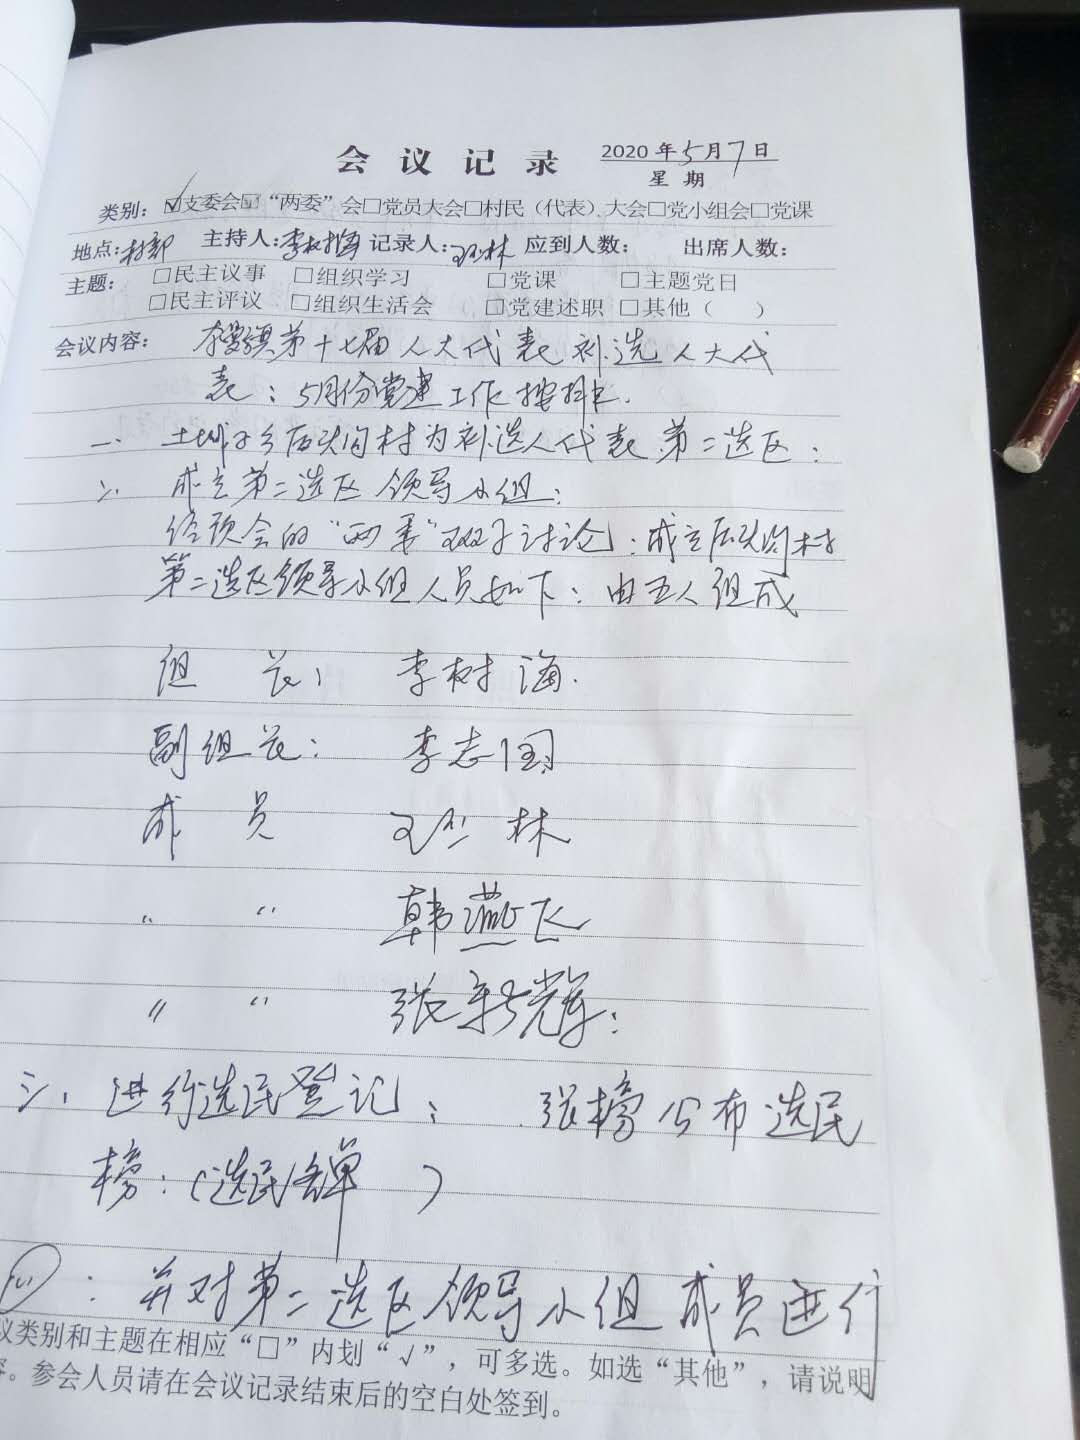 会议记录 2020年5月7日
星期
类别：☑支委会☑“两委”会□党员大会□村民（代表）大会□党小组会□党课
地点：村部 主持人：李树海 记录人：王丛林 应到人数： 出席人数：
主题： □民主议事 □组织学习 □党课 □主题党日
□民主评议 □组织生活会 □党建述职 □其他（ ）
会议内容： 第十七届人大代表补选人大代
表；5月份党建工作按排.
一、土城子乡后头沟村为补选人代表第二选区；
二、成立第二选区领导小组；
经预会的“两委”班子讨论；成立后头沟村
第二选区领导小组人员如下：由五人组成
组长： 李树海.
副组长： 李志国
成员 王丛林
〃 〃 韩燕飞
〃 〃 张新辉；
三、进行选民登记； 张榜公布选民
榜：（选民名单 ）
四：并对第二选区领导小组成员进行
议类别和主题在相应“□”内划“√”，可多选。如选“其他”，请说明
容。参会人员请在会议记录结束后的空白处签到。